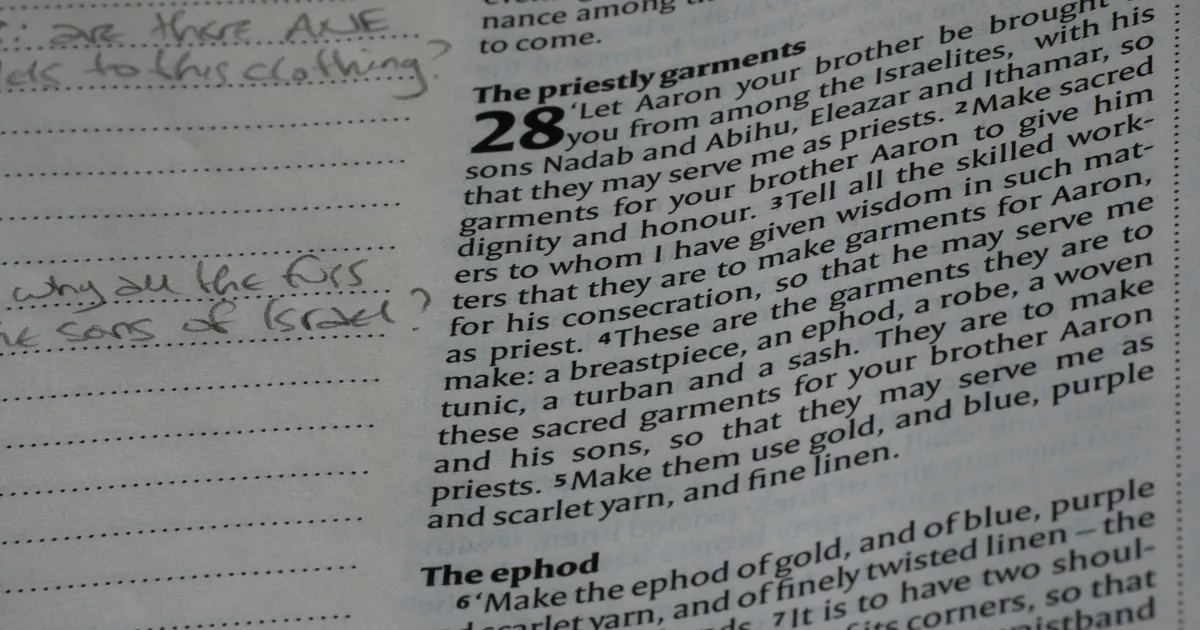 : are there ANE
to this clothing?
why all the furs
sons of Israel?
nance among
to come.
The priestly garments
28 ‘Let Aaron your brother be brought
you from among the Israelites, with his
sons Nadab and Abihu, Eleazar and Ithamar, so
that they may serve me as priests. 2Make sacred
garments for your brother Aaron to give him
dignity and honour. 3Tell all the skilled work-
ers to whom I have given wisdom in such mat-
ters that they are to make garments for Aaron,
for his consecration, so that he may serve me
as priest. 4These are the garments they are to
make: a breastpiece, an ephod, a robe, a woven
tunic, a turban and a sash. They are to make
these sacred garments for your brother Aaron
and his sons, so that they may serve me as
priests. 5Make them use gold, and blue, purple
and scarlet yarn, and fine linen.
The ephod
6‘Make the ephod of gold, and of blue, purple
scarlet yarn, and of finely twisted linen – the
7It is to have two shoul-
its corners, so that
waistband